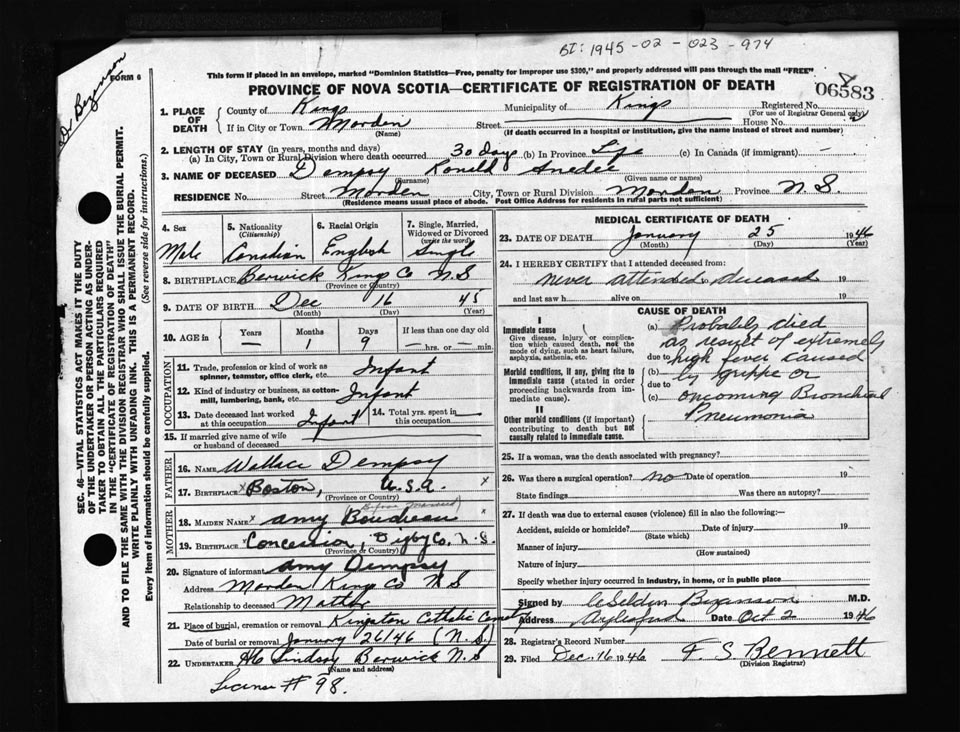 BI: 1945-02-023-974
Dr Bezanson
FORM 6
This form if placed in an envelope, marked "Dominion Statistics—Free, penalty for improper use $300," and properly addressed will pass through the mail "FREE"
PROVINCE OF NOVA SCOTIA—CERTIFICATE OF REGISTRATION OF DEATH
06583
1. PLACE OF DEATH
County of Kings Municipality of Kings Registered No.
(For use of Registrar General only)
If in City or Town Morden Street House No.
(Name) (If death occurred in a hospital or institution, give the name instead of street and number)
2. LENGTH OF STAY (in years, months and days)
(a) In City, Town or Rural Division where death occurred 30 days (b) In Province Life (c) In Canada (if immigrant) —
3. NAME OF DECEASED Dempsy Ronald Anedee
(Surname) (Given name or names)
RESIDENCE No. Street Morden City, Town or Rural Division Morden Province N.S.
(Residence means usual place of abode. Post Office Address for residents in rural parts not sufficient)
4. Sex
Male
5. Nationality (Citizenship)
Canadian
6. Racial Origin
English
7. Single, Married, Widowed or Divorced (write the word)
Single
8. BIRTHPLACE Berwick Kings Co N.S
(Province or Country)
9. DATE OF BIRTH Dec 16 45
(Month) (Day) (Year)
10. AGE in Years Months Days If less than one day
— 1 9 — hrs. or — min.
OCCUPATION
11. Trade, profession or kind of work as spinner, teamster, office clerk, etc. Infant
12. Kind of industry or business, as cotton-mill, lumbering, bank, etc. Infant
13. Date deceased last worked at this occupation Infant 14. Total yrs. spent in this occupation —
15. If married give name of wife or husband of deceased
FATHER
16. NAME Wallace Dempsy
17. BIRTHPLACE x Boston, U.S.A. x
(Province or Country)
MOTHER
(before married)
18. MAIDEN NAME x Amy Boudreau x
19. BIRTHPLACE x Concession, Digby Co. N.S.
(Province or Country)
20. Signature of informant Amy Dempsy
Address Morden Kings Co N S
Relationship to deceased Mother
21. Place of burial, cremation or removal Kingston Catholic Cemetry
Date of burial or removal January 26/46 (N.S.)
22. UNDERTAKER Lindsay Berwick N S
(Name and address)
License # 98.
MEDICAL CERTIFICATE OF DEATH
23. DATE OF DEATH January 25 1946
(Month) (Day) (Year)
24. I HEREBY CERTIFY that I attended deceased from:
never attended deceased 19
and last saw h alive on 19
CAUSE OF DEATH
I
Immediate cause
Give disease, injury or complication which caused death, not the mode of dying, such as heart failure, asphyxia, asthenia, etc.
Morbid conditions, if any, giving rise to immediate cause (stated in order proceeding backwards from immediate cause).
II
Other morbid conditions (if important) contributing to death but not causally related to immediate cause.
(a) Probably died
as result of extremely
due to high fever caused
(b) by grippe or
due to
(c) oncoming Bronchial
Pneumonia
25. If a woman, was the death associated with pregnancy?
26. Was there a surgical operation? no Date of operation 19
State findings Was there an autopsy?
27. If death was due to external causes (violence) fill in also the following:—
Accident, suicide or homicide? Date of injury 19
(State which)
Manner of injury
(How sustained)
Nature of injury
Specify whether injury occurred in industry, in home, or in public place
Signed by Selden Bezanson M.D.
Address Aylesford Date Oct 2 1946
28. Registrar's Record Number
29. Filed Dec. 16 1946 F. S. Bennett
(Division Registrar)
SEC. 46—VITAL STATISTICS ACT MAKES IT THE DUTY
OF THE UNDERTAKER OR PERSON ACTING AS UNDER-
TAKER TO OBTAIN ALL THE PARTICULARS REQUIRED
IN THE "CERTIFICATE OF REGISTRATION OF DEATH"
AND TO FILE THE SAME WITH THE DIVISION REGISTRAR WHO SHALL ISSUE THE BURIAL PERMIT.
WRITE PLAINLY WITH UNFADING INK. THIS IS A PERMANENT RECORD.
Every item of information should be carefully supplied. (See reverse side for instructions.)